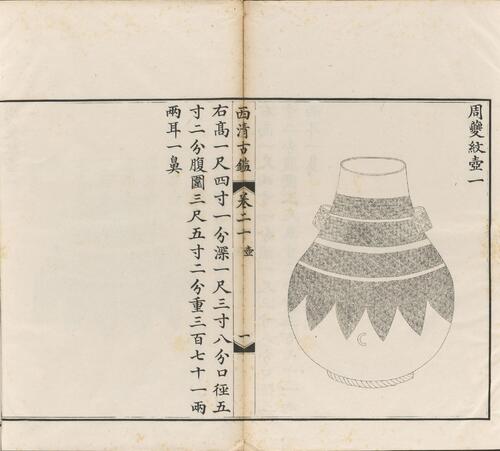 周夔紋壺一
西清古鑑
卷二十 壺
一
右高一尺四寸一分深一尺三寸八分口徑五
寸二分腹圍三尺五寸二分重三百七十一兩
兩耳一鼻